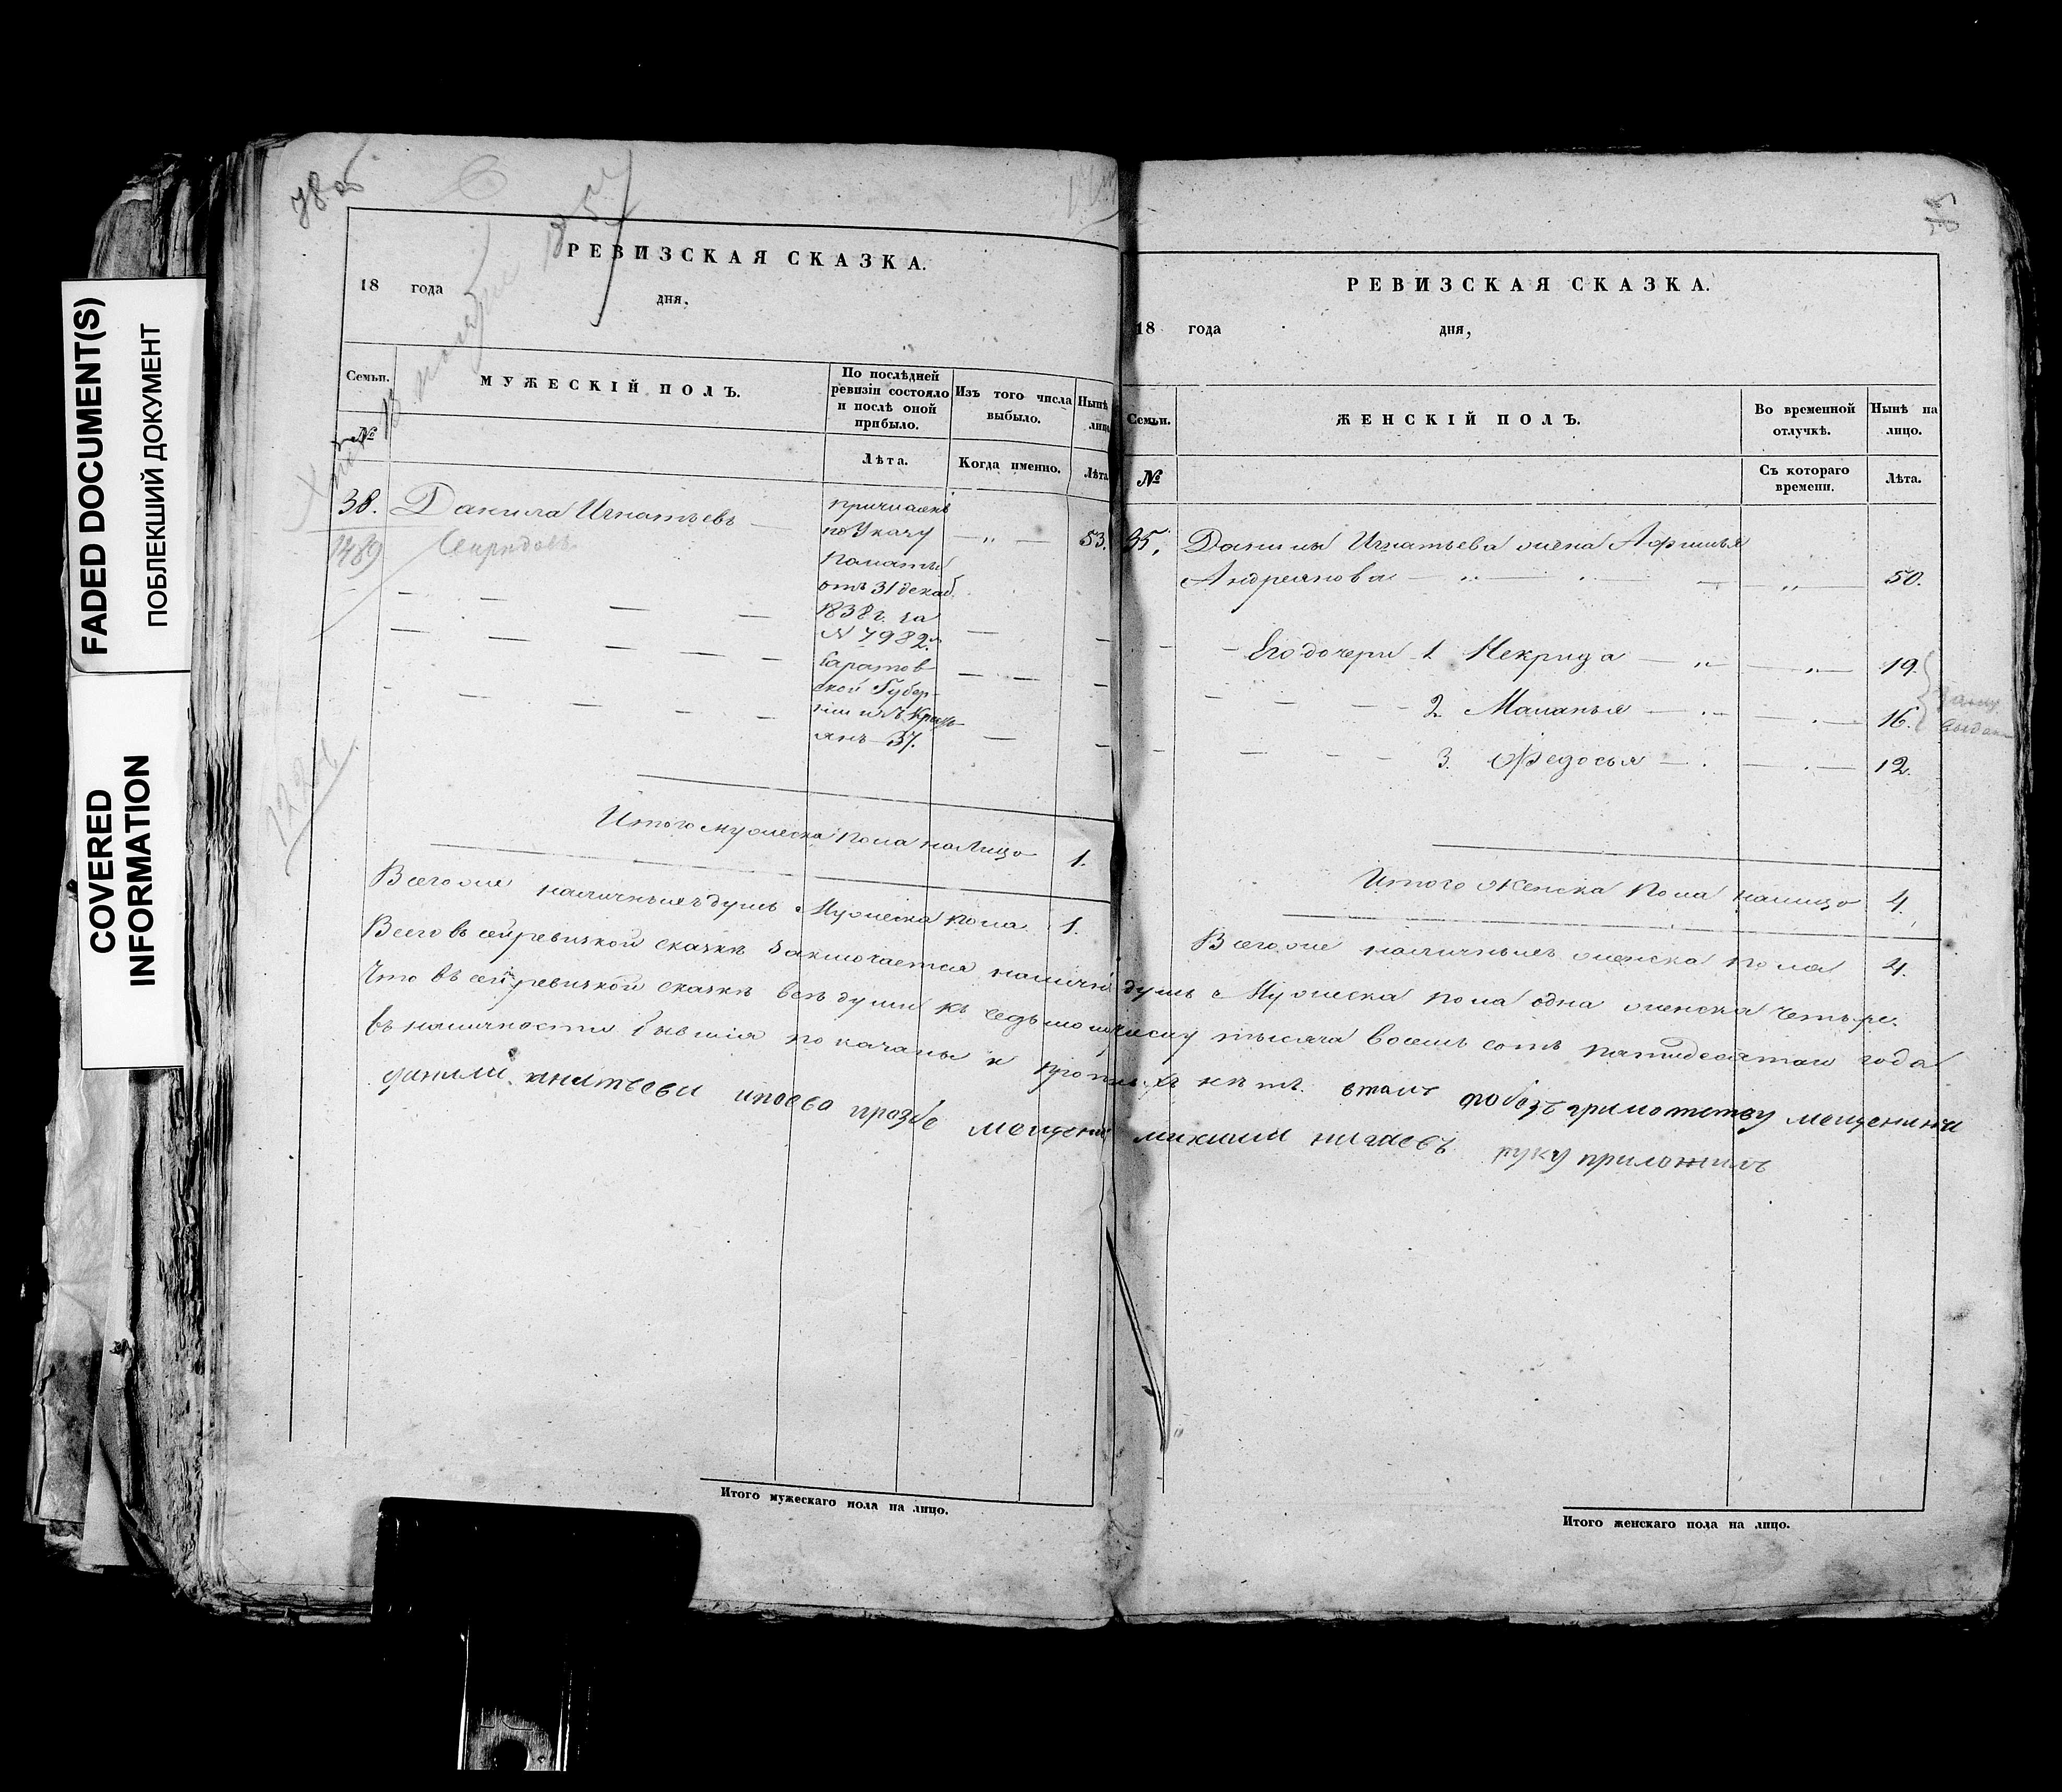 FADED DOCUMENT(S)
ПОБЛЕКШИЙ ДОКУМЕНТ
COVERED
INFORMATION
78 об
РЕВИЗСКАЯ СКАЗКА.
18 года дня,
1857
Семьи.
МУЖЕСКІЙ ПОЛЪ.
По послѣдней ревизіи состояло и послѣ оной прибыло.
Изъ того числа выбыло.
Нынѣ
№
Лѣта.
Когда именно.
Лѣта
38. Данила Игнатьевъ причисленъ
по Указу 53.
1489 Свиридовъ
Палаты
отъ 31 декаб.
1838 г. за
№ 7982.
Саратов
ской Губер
ніи изъ Кресть
янъ 37.
Итого мужеска пола на лицо 1.
Всего же наличныхъ душъ мужеска пола 1.
РЕВИЗСКАЯ СКАЗКА.
18 года дня,
Семьи.
ЖЕНСКІЙ ПОЛЪ.
Во временной отлучкѣ.
Нынѣ на лицо.
№
Съ котораго времени.
Лѣта.
35. Данилы Игнатьева жена Афимья
Андреянова 50.
Его дочери 1 Некрида 19.
2 Маланья 16.
3. Федосья 12.
Итого женска пола налицо 4.
Всего же наличныхъ женска пола 4.
Всего въ сей ревизкой сказкѣ заключается налични душъ Мужеска пола одна женска четыре.
Что въ сей ревизкой сказкѣ всѣ души къ седьмому числу тысяча восемь сотъ пятидесятаго года
въ наличности бывшія показаны и
мещенинъ руку приложилъ
Итого мужескаго пола на лицо.
Итого женскаго пола на лицо.